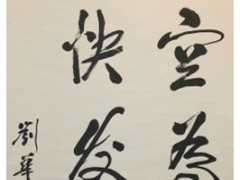 空為
快发
劉華